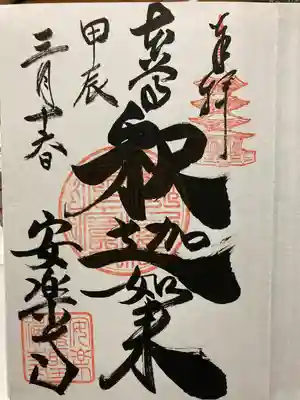 奉拝
本尊
釈迦如来
甲辰
三月十
安楽寺